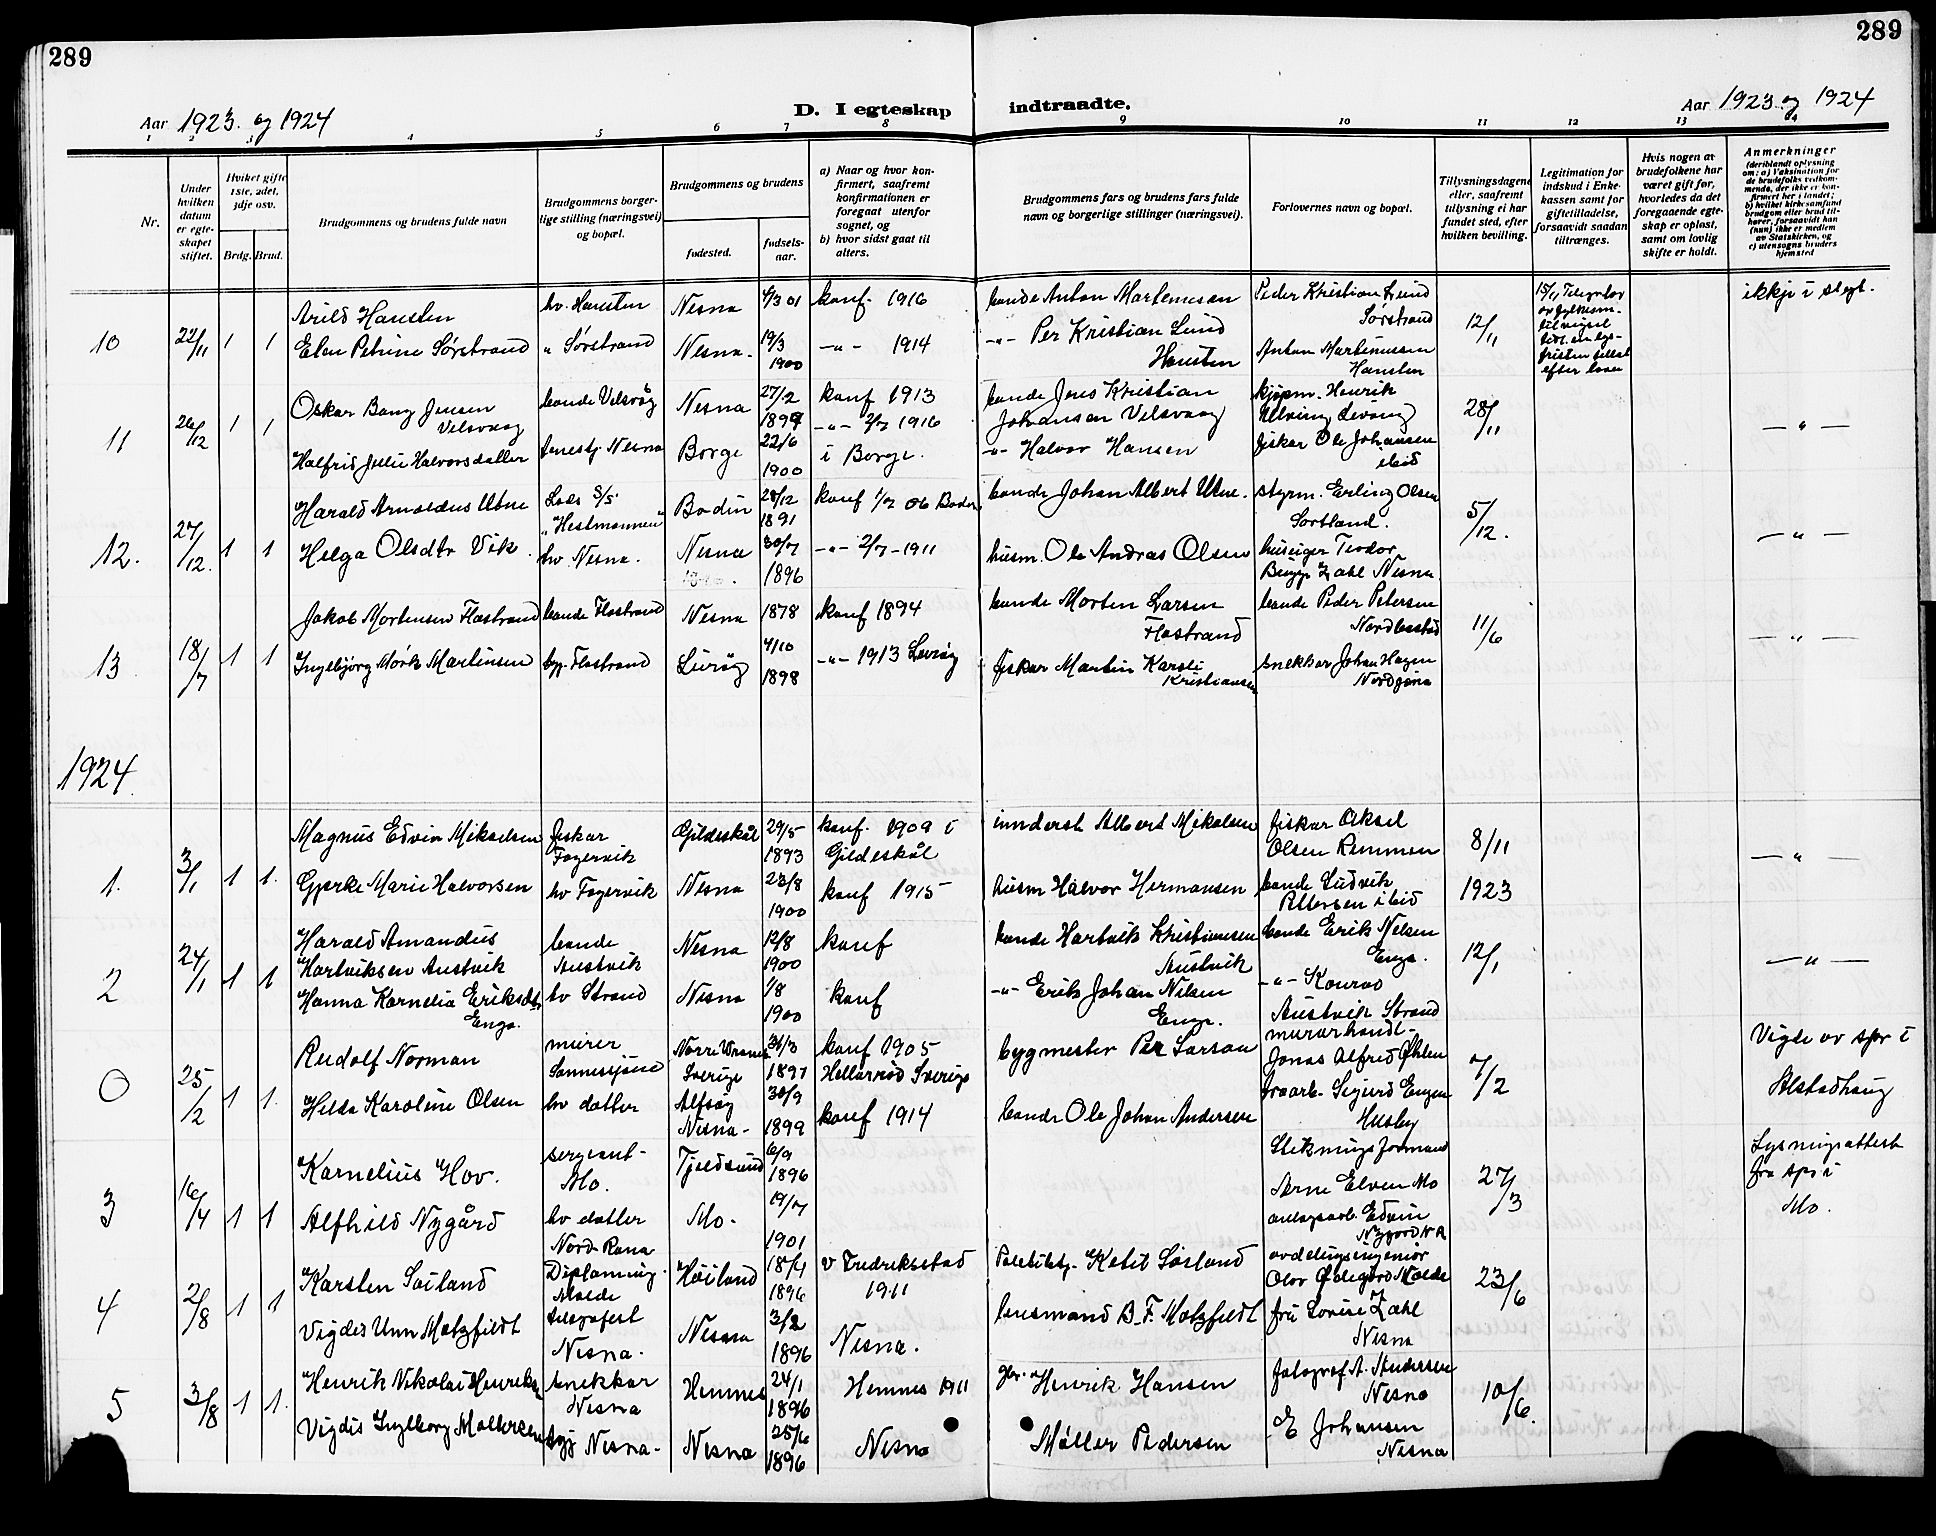 289
289
Aar 1923. og 1924
D. I egteskap indtraadte.
Aar 1923 og 1924
1 2 3 4 5 6 7 8 9 10 11 12 13 14
Nr.
Under hvilken datum er egteskapet stiftet.
Hvilket gifte 1ste, 2det, 3dje osv.
Brdg. Brud.
Brudgommens og brudens fulde navn
Brudgommens borgerlige stilling (næringsvei) og bopæl.
Brudgommens og brudens
fødested.
fødselsaar.
a) Naar og hvor konfirmert, saafremt konfirmationen er foregaat utenfor sognet, og
b) hvor sidst gaat til alters.
Brudgommens fars og brudens fars fulde navn og borgerlige stillinger (næringsvei).
Forlovernes navn og bopæl.
Tillysningsdagene eller, saafremt tillysning ei har fundet sted, efter hvilken bevilling.
Legitimation for indskud i Enkekassen samt for giftetilladelse, forsaavidt saadan tiltrænges.
Hvis nogen av brudefolkene har været gift før, hvorledes da det foregaaende egteskap er opløst, samt om lovlig skifte er holdt.
Anmerkninger (deriblandt oplysning om: a) Vaksination for de brudefolks vedkommende, der ikke er konfirmert her i landet; b) hvilket kirkesamfund brudgom eller brud tilhører, forsaavidt han (hun) ikke er medlem av Statskirken, og c) utensogns bruders hjemsted
10 22/11 1 1
Arild Hansten hv. Hansten Nesna 4/3 01 konf. 1916 bonde Anton Martinussen Peder Kristian Lund Sørstrand 12/11 ikkje i slegt.
Elen Petrine Sørstrand " Sørstrand Nesna. 19/3 1900 -"- 1914 -"- Per Kristian Lund Hansten Anton Martinussen Hansten
11 26/12 1 1
Oskar Bang Jensen Velsvaag bonde Velsvåg Nesna 27/2 1899 konf 1913 bonde Jens Kristian Johansen Velsvaag kjøpm. Henrik 28/11 — " —
-"- 2/7 1916
Halfrid Julie Halvorsdatter Nesna Borge 22/6 1900 i Borge. -"- Halvor Hansen fisker Ole Johansen
12. 27/12. 1 1
Harald Arnoldus Utne Los S/S "Hestmannen" Bodin 28/12 1891 konf 1/7 06 Bodin bonde Johan Albert Utne. styrm. Erling Olsen Sortland. 5/12. — " —
Helga Olsdtr Vik hv. Nesna. Nesna 30/7 1896 -"- 2/7 - 1911 husm. Ole Andras Olsen huseiger Teodor Zahl Nesna.
13 18/7 1 1
Jakob Mortensen Flostrand bonde Flostrand Nesna 1878 konf 1894 bonde Morten Larsen Flostrand bonde Peder Petersen 11/6 — " —
Ingebjørg Mørk Martinsen Flostrand Lurøy 4/10 1898 -"- 1913 Lurøy fisker Martin Karoli Kristiansen snekker Johan Hagen
1924
1. 3/1 1 1.
Magnus Edvin Mikaelsen fisker Fagervik Gildeskål 29/5 1893 konf. 1909 i Gildeskål innderst Albert Mikalsen fisker Aksel Olsen Remmen 8/11 — " —
Gjerke Marie Halvorsen hv Fagervik Nesna 23/8 1900 konf 1915 husm Halvor Hermansen bonde Ludvik 1923
2 24/1 1 1
Harald Amandus Hartviksen Austvik bonde Austvik Nesna 12/8 1900 konf bonde Hartvik Kristiansen Austvik bonde Erik Nilsen Enge. 12/1 — " —
Hanna Kornelia Eriksdtr Enge. hv Strand Nesna 1/8 1900 konf -"- Erik Johan Nilsen Enge. -"- Konrad Austvik Strand
0 25/2 1 1.
Rudolf Norman murer Sverige 1897 konf 1905 Sverige bygmester Per Larson Jonas Alfred Øhlen 7/2 Vigde av spr i Alstadhaug
Hilda Karoline Olsen hv datter Nesna- 30/9 1899 konf 1914 bonde Ole Johan Andersen Sigurd Engen Husby
3 16/4 1 1
Kornelius Hov. sergeant- Mo. Tjeldsund 6/9 1896 Arne Elven Mo 27/3 Lysningsattest fra spr i Mo.
Alfhild Nygård hv datter Nord-Rana Mo. 19/7 1901 anlagsarb. Edvin Nygord N R
4 2/8 1 1
Karsten Søiland Molde Høiland 18/4 1896 v Fredrikstad 1911 Ketil Søiland avdelingsingeniør Olav Ødegård Molde 23/6
Vigdis Unn Motzfeldt telegrafest Nesna. Nesna 3/2 1896 Nesna. lensmand B. F. Motzfeldt fru Lovise Zahl Nesna
5 3/8 1 1.
Henrik Nikolai Henriksen snekker Nesna Hemnes 24/1 1896 Hemnes 1911 Henrik Hansen fotograf A. Andersen Nesna 10/6.
Vigdis Ingeborg Nesna- Nesna 25/6 1896 Nesna Møller Pedersen E Johansen Nesna